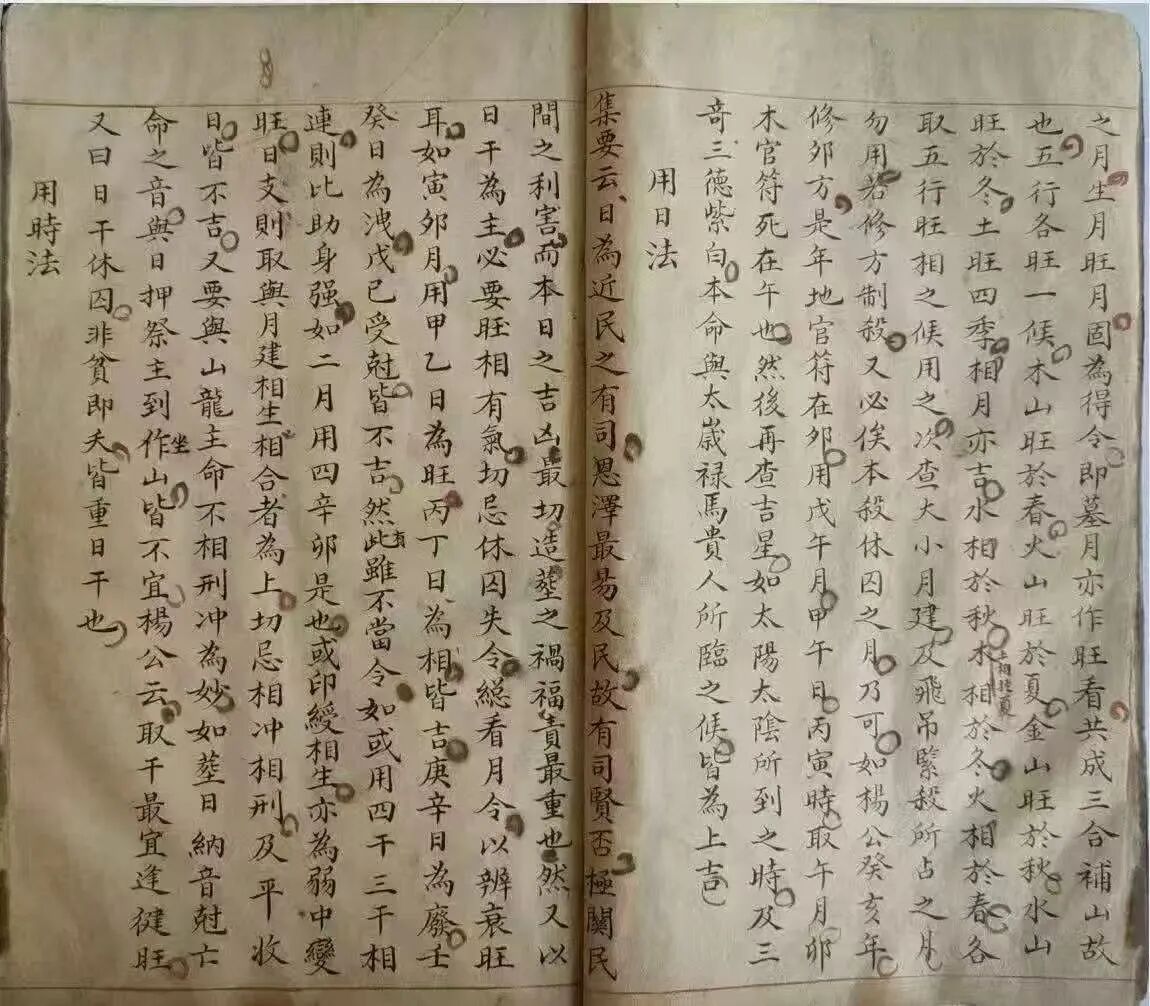 之月生月旺月固為得令即墓月亦作旺看共成三合補山故
也五行各旺一候木山旺於春火山旺於夏金山旺於秋水山
旺於冬土旺四季相月亦吉水相於秋木相於冬火相於春各
土相於夏
取五行旺相之候用之次查大小月建及飛吊緊殺所占之月
勿用若修方制殺又必俟本殺休囚之月乃可如楊公癸亥年
修夘方是年地官符在夘用戊午月甲午日丙寅時取午月卯
木官符死在午也然後再查吉星如太陽太陰所到之時及三
竒三德紫白本命與太歲祿馬貴人所臨之候皆為上吉
用日法
集要云日為近民之有司恩澤最易及民故有司賢否極關民
間之利害而本日之吉凶最切造塟之禍福責最重也然又以
日干為主必要旺相有氣切忌休囚失令緫看月令以辨衰旺
耳如寅夘月用甲乙日為旺丙丁日為相皆吉庚辛日為廢壬
癸日為洩戊己受尅皆不吉然此雖不當令如或用四干三干相
連則比助身强如二月用四辛卯是也或印綬相生亦為弱中變
旺日支則取與月建相生相合者為上切忌相冲相刑及平收
日皆不吉又要與山龍主命不相刑冲為妙如塟日納音尅亡
命之音與日押祭主到作山皆不宜楊公云取干最宜逢健旺
坐
又曰日干休囚非貧即夭皆重日干也
用時法